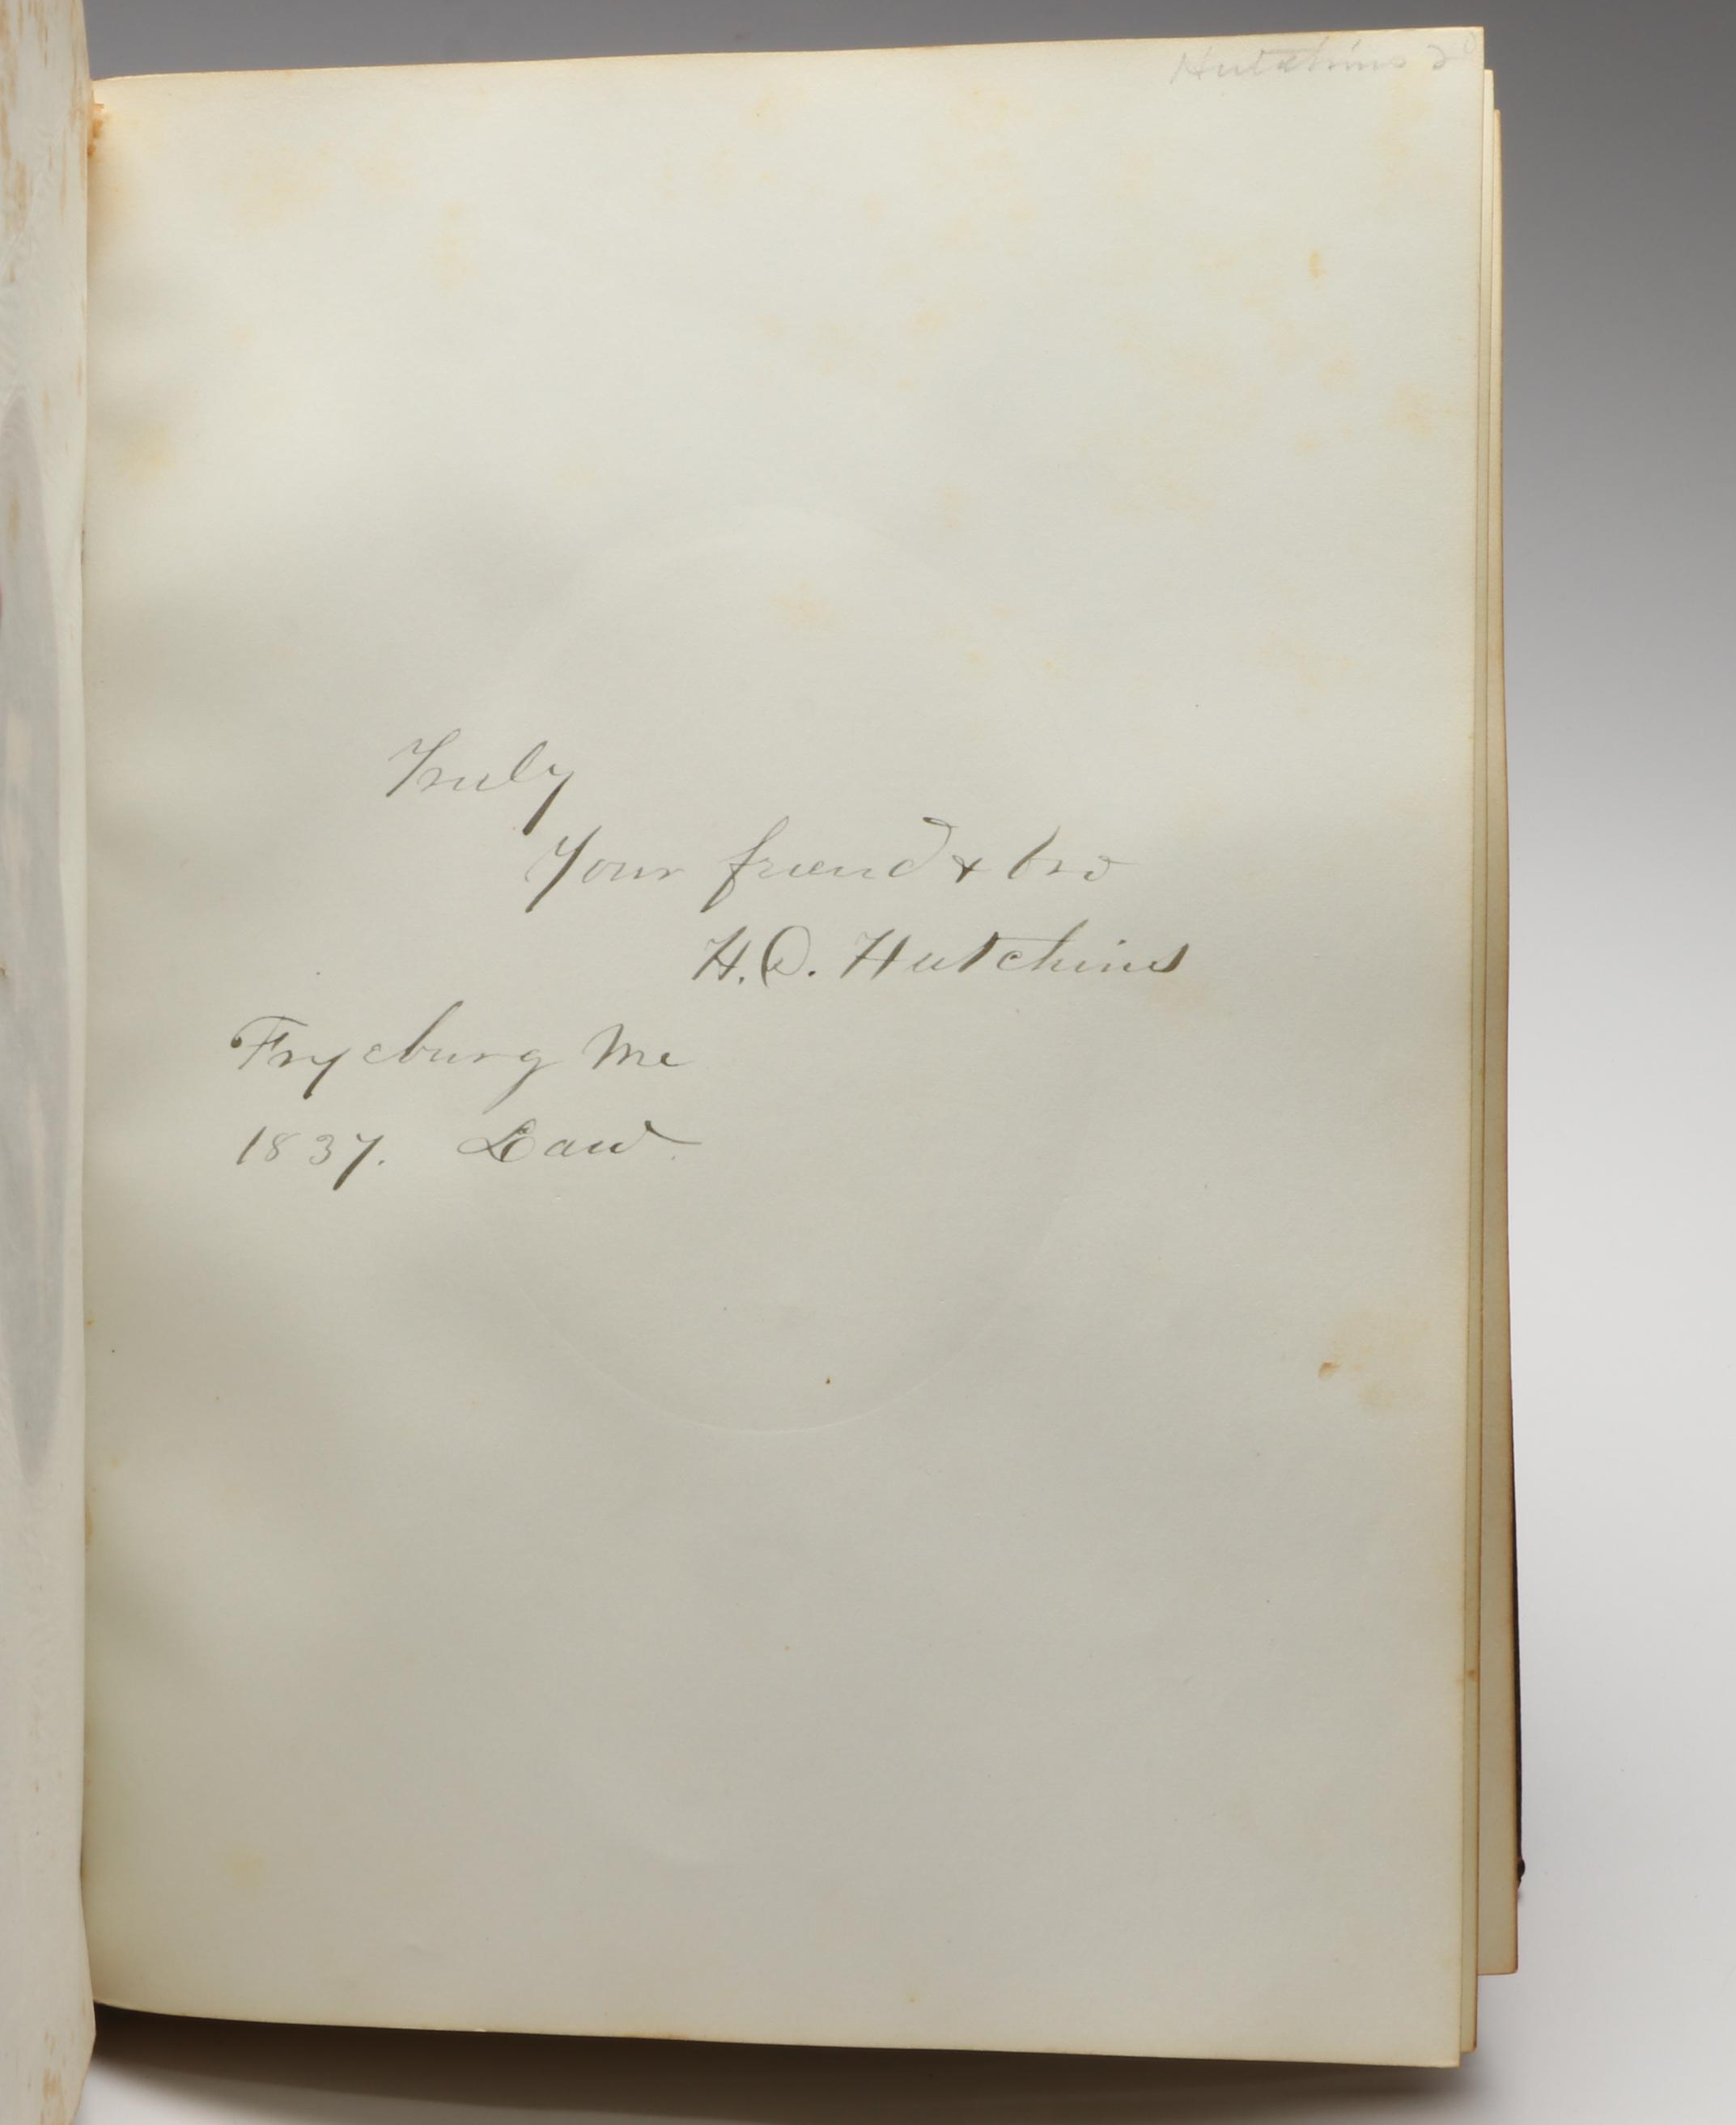 Hutchins 2º
Truly
Your friend & bro
H. D. Hutchins
Fryeburg Me
1837. Law